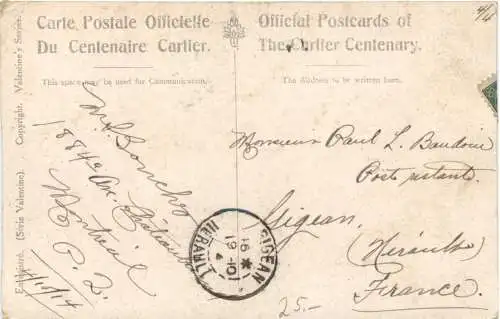 Carte Postale Officielle
Du Centenaire Cartier.
This space may be used for Communication.
Official Postcards of
The Cartier Centenary.
The Address to be written here.
Enregistré. (Série Valentine). Copyright. Valentine's Series.
1884a Ave.
Montréal
P. 2.
4/10/14
Monsieur Paul L. Baudouin
Poste restante.
Gigean
(Hérault)
France.
GIGEAN
16 -10
HERAULT
25.-
4/4